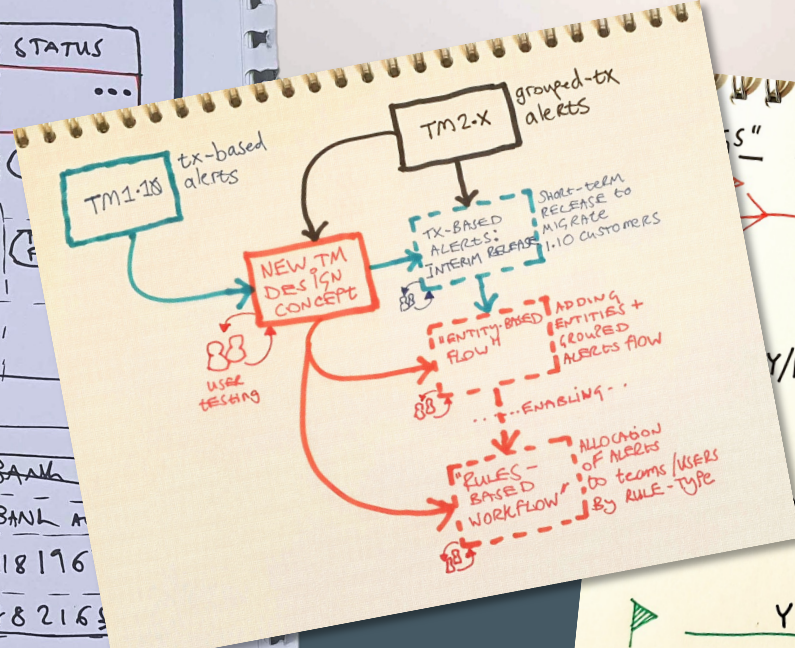 STATUS
TM1.10
tx-based
alerts
TM2.X
grouped-tx
alerts
NEW TM
DESIGN
CONCEPT
USER
testing
TX-BASED
ALERTS:
INTERIM RELEASE
SHORT-TERM
RELEASE to
MIGRATE
1.10 CUSTOMERS
"ENTITY-BASED
FLOW"
ADDING
ENTITIES +
GROUPED
ALERTS FLOW
...ENABLING...
"RULES-
BASED
WORKFLOW"
ALLOCATION
OF ALERTS
to teams/USERS
By RULE-TYPE
S"
Y/
BANK
BANK A
18196
8216
Y